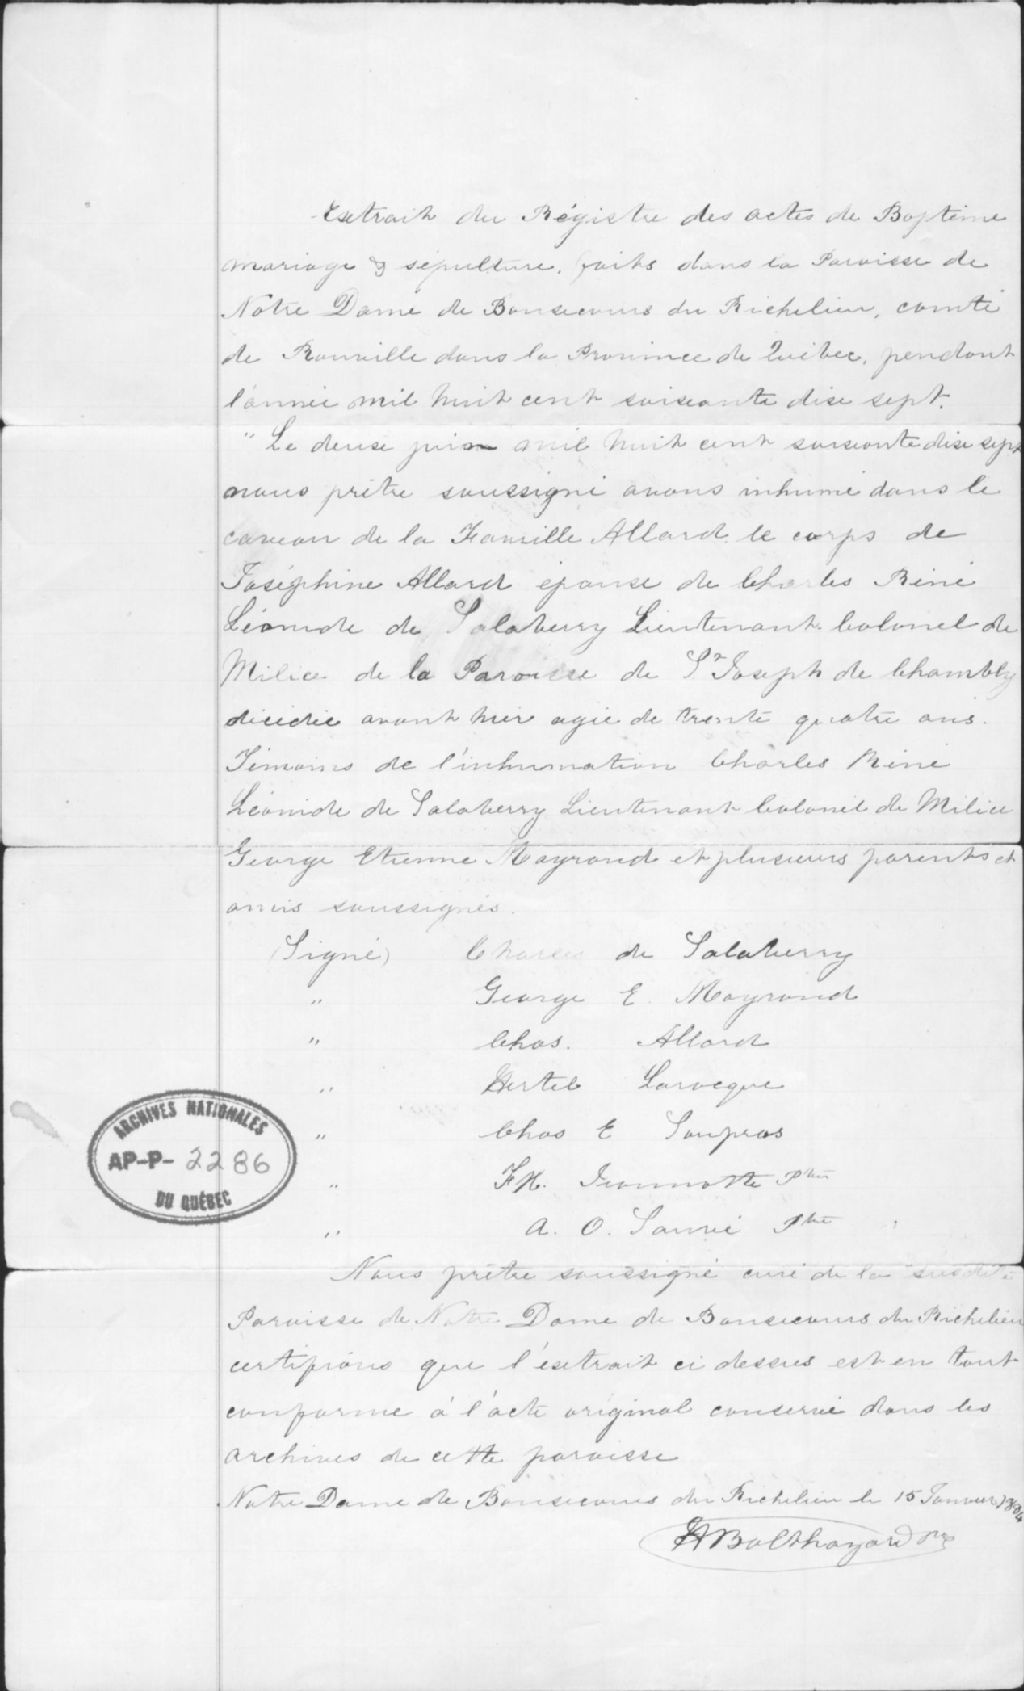 Extrait du Régistre des actes de Baptême
mariage & sépulture, faits dans la Paroisse de
Notre Dame de Bonsecours du Richelieu, comté
de Rouville dans la Province de Québec, pendant
l'année mil huit cent soixante dix sept.
"Le deux juin mil huit cent soixante dix sept
nous prêtre soussigné avons inhumé dans le
caveau de la Famille Allard le corps de
Joséphine Allard épouse de Charles Réné
Léonide de Salaberry Lieutenant Colonel de
Milice de la Paroisse de St Joseph de Chambly
décédée avant hier agée de trente quatre ans.
Témoins de l'inhumation Charles Réné
Léonide de Salaberry Lieutenant Colonel de Milice
George Etienne Mayrand et plusieurs parents et
amis soussignés.
(Signé) Charles de Salaberry
" George E. Mayrand
" Chas. Allard
" Hertel Larocque
" Chas E Soupras
" Jeannotte Ptre
" A. O. Sauvé Ptre
ARCHIVES NATIONALES
AP-P-2286
DU QUÉBEC
Nous prêtre soussigné curé de la susdite
Paroisse de Notre Dame de Bonsecours du Richelieu
certifions que l'extrait ci dessus est en tout
conforme à l'acte original conservé dans les
archives de cette paroisse
Notre Dame de Bonsecours du Richelieu le 15 Janvier
Balthazard Ptre